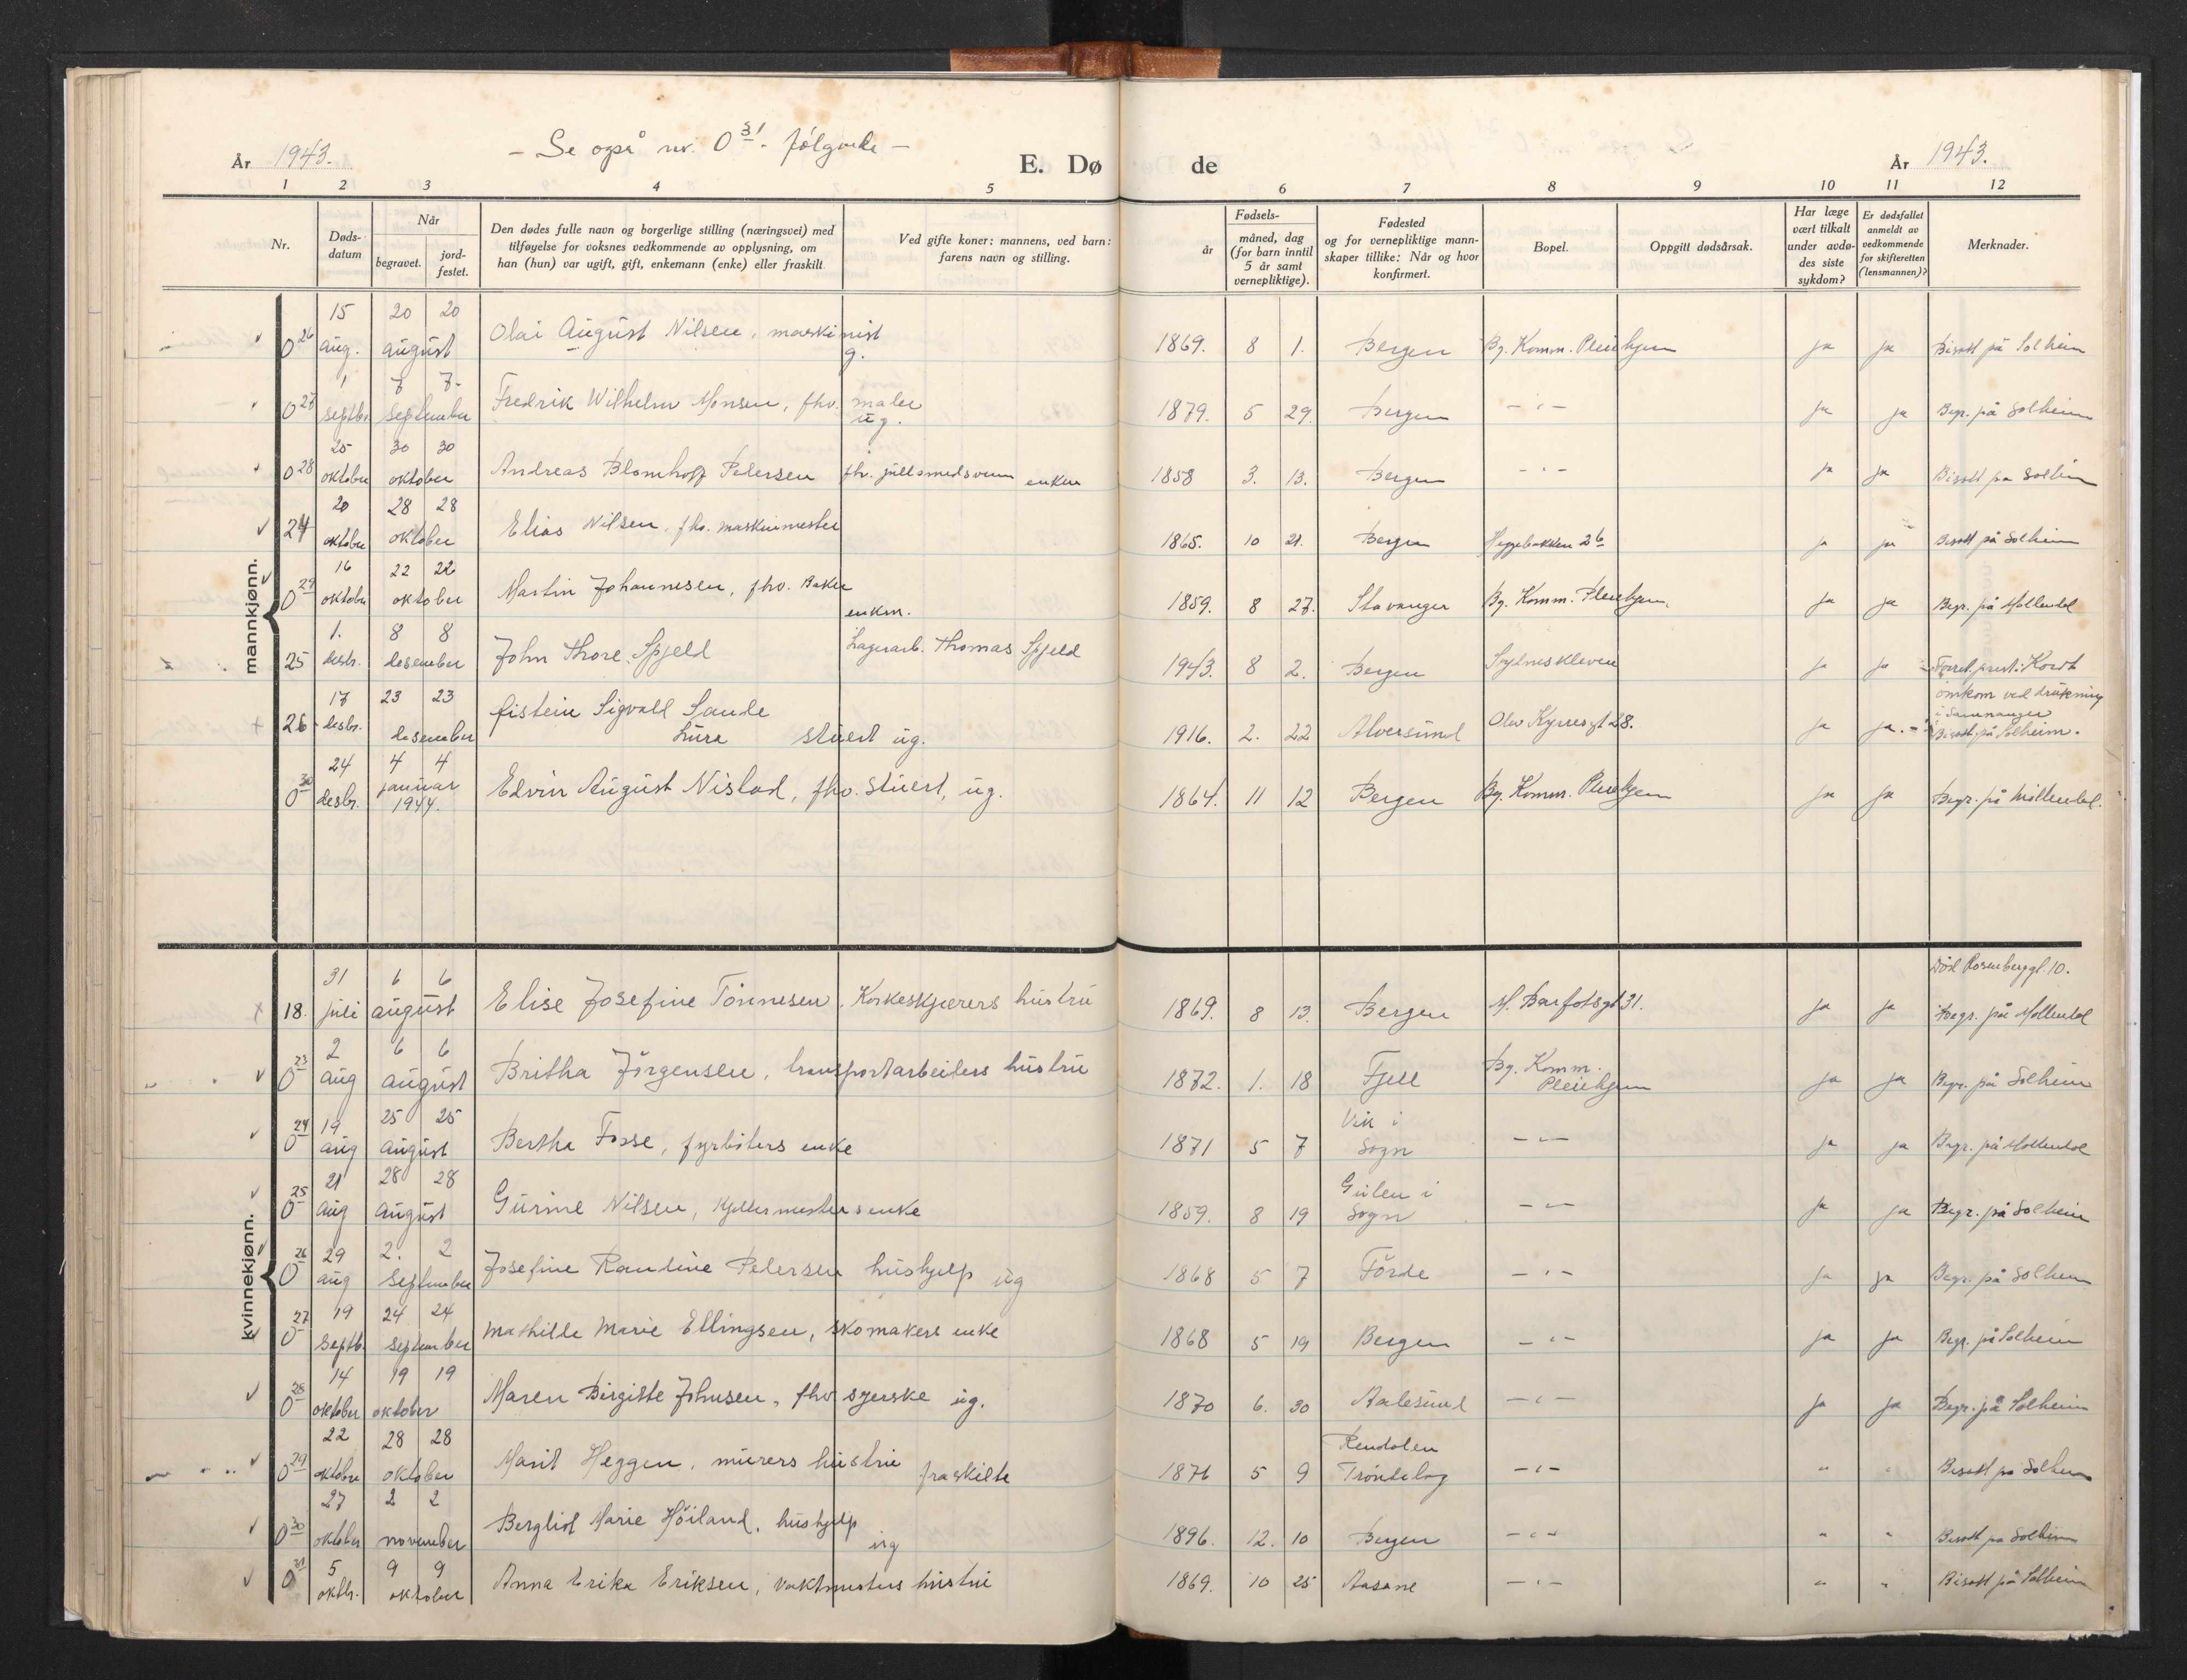 År 1943.
- Se også nr. 0 31 følgende -
E. Dø de
År 1943.
1 2 3 4 5 6 7 8 9 10 11 12
Nr.
Døds-
datum
Når
begravet.
jord-
festet.
Den dødes fulle navn og borgerlige stilling (næringsvei) med
tilføyelse for voksnes vedkommende av opplysning, om
han (hun) var ugift, gift, enkemann (enke) eller fraskilt
Ved gifte koner: mannens, ved barn:
farens navn og stilling.
Fødsels-
år
måned, dag
(for barn inntil
5 år samt
vernepliktige).
Fødested
og for vernepliktige mann-
skaper tillike: Når og hvor
konfirmert.
Bopel.
Oppgitt dødsårsak.
Har læge
vært tilkalt
under avdø-
des siste
sykdom?
Er dødsfallet
anmeldt av
vedkommende
for skifteretten
(lensmannen)?
Merknader.
mannkjønn.
15 20 20
0 26 aug. august Olai August Nilsen, maskinist g. 1869. 8 1. Bergen Bg. Komm. Pleiehjem ja ja Bisatt på Solheim
1 7 7.
0 27 septbr. september Fredrik Wilhelm Monsen, fhv. maler ug. 1879. 5 29. Bergen - " - ja ja Begr. på Solheim
25 30 30
0 28 oktober oktober Andreas Blomhoff Pedersen fhv. gullsmedsvenn enkem 1858 3. 13. Bergen - " - ja ja Bisatt på Solheim
20 28 28
24 oktober oktober Elias Nilsen, fhv. maskinmester 1865. 10 21. Bergen Heggebakken 26 ja ja Bisatt på Solheim
16 22 22
0 29 oktober oktober Martin Johannesen, fhv. Baker enkm. 1859. 8 27. Stavanger Bg. Komm. Pleiehjem. ja ja Begr. på Møllendal
1. 8 8
25 desbr. desember John Thore Spjeld Lagerarb. Thomas Spjeld 1943. 8 2. Bergen Sydneskleven ja ja Forret. prest: Kordt
17 23 23
26 desbr. desember Eistein Sigvald Sande Lura stuert ug. 1916. 2. 22 Alversund Olav Kyrresgt 28. ja ja. omkom ved drukning
i Samnanger
Bisatt på Solheim.
24 4 4
0 30 desbr. januar 1944. Edvin August Nistad, fhv. stuert, ug. 1864. 11 12 Bergen Bg. Komm. Pleiehjem ja ja Begr. på Møllendal.
kvinnekjønn.
Død Rosenberggt. 10.
31 6 6
18. juli august Elise Josefine Tönnesen, Korkeskjærers hustru 1869. 8 13. Bergen M. Barfotsgt 31. ja ja Begr. på Møllendal
2 6 6
0 23 aug august Britha Jörgensen, transportarbeiders hustru 1872. 1. 18 Fjell Bg. Komm. Pleiehjem ja ja Begr. på Solheim
19 25 25
0 24 aug august Bertha Fosse, fyrbøters enke 1871 5 7 Vik i Sogn - " - ja ja Begr. på Møllendal
21 28 28
0 25 aug august Gurine Nilsen, kjellermesters enke 1859. 8 19 Gulen i Sogn - " - ja ja Begr. på Solheim
29 2. 2
0 26 aug september Josefine Rautine Pedersen hushjelp ug 1868 5 7 Förde - " - ja ja Begr. på Solheim
19 24 24
0 27 septb. september Mathilde Marie Ellingsen, skomakers enke 1868 5 19 Bergen - " - ja ja Begr. på Solheim
14 19 19
0 28 oktober oktober Maren Birgitte Johnsen, fhv. syerske ug. 1870 6. 30 Aalesund - " - ja ja Begr. på Solheim
22 28 28
0 29 oktober oktober Marit Heggen, murers hustru fraskilte 1876 5 9 Rendalen Tröndelag - " - " " Bisatt på Solheim
27 2 2
0 30 oktober november Bergliot Marie Höiland, hushjelp ug 1896. 12. 10 Bergen - " - " " Bisatt på Solheim
5 9 9
0 31 oktbr. oktober Anna Erika Eriksen, vaktmesters hustru 1869. 10 25 Aasane - " - " " Bisatt på Solheim